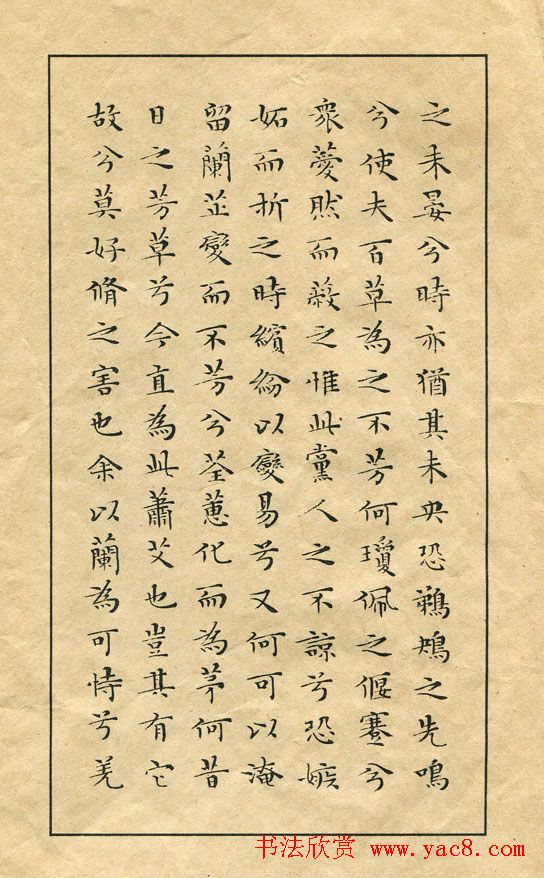 之未晏兮時亦猶其未央恐鵜鴂之先鳴
兮使夫百草為之不芳何瓊佩之偃蹇兮
衆薆然而蔽之惟此黨人之不諒兮恐嫉
妬而折之時繽紛以變易兮又何可以淹
留蘭芷變而不芳兮荃蕙化而為茅何昔
日之芳草兮今直為此蕭艾也豈其有它
故兮莫好脩之害也余以蘭為可恃兮羌
书法欣赏 www.yac8.com